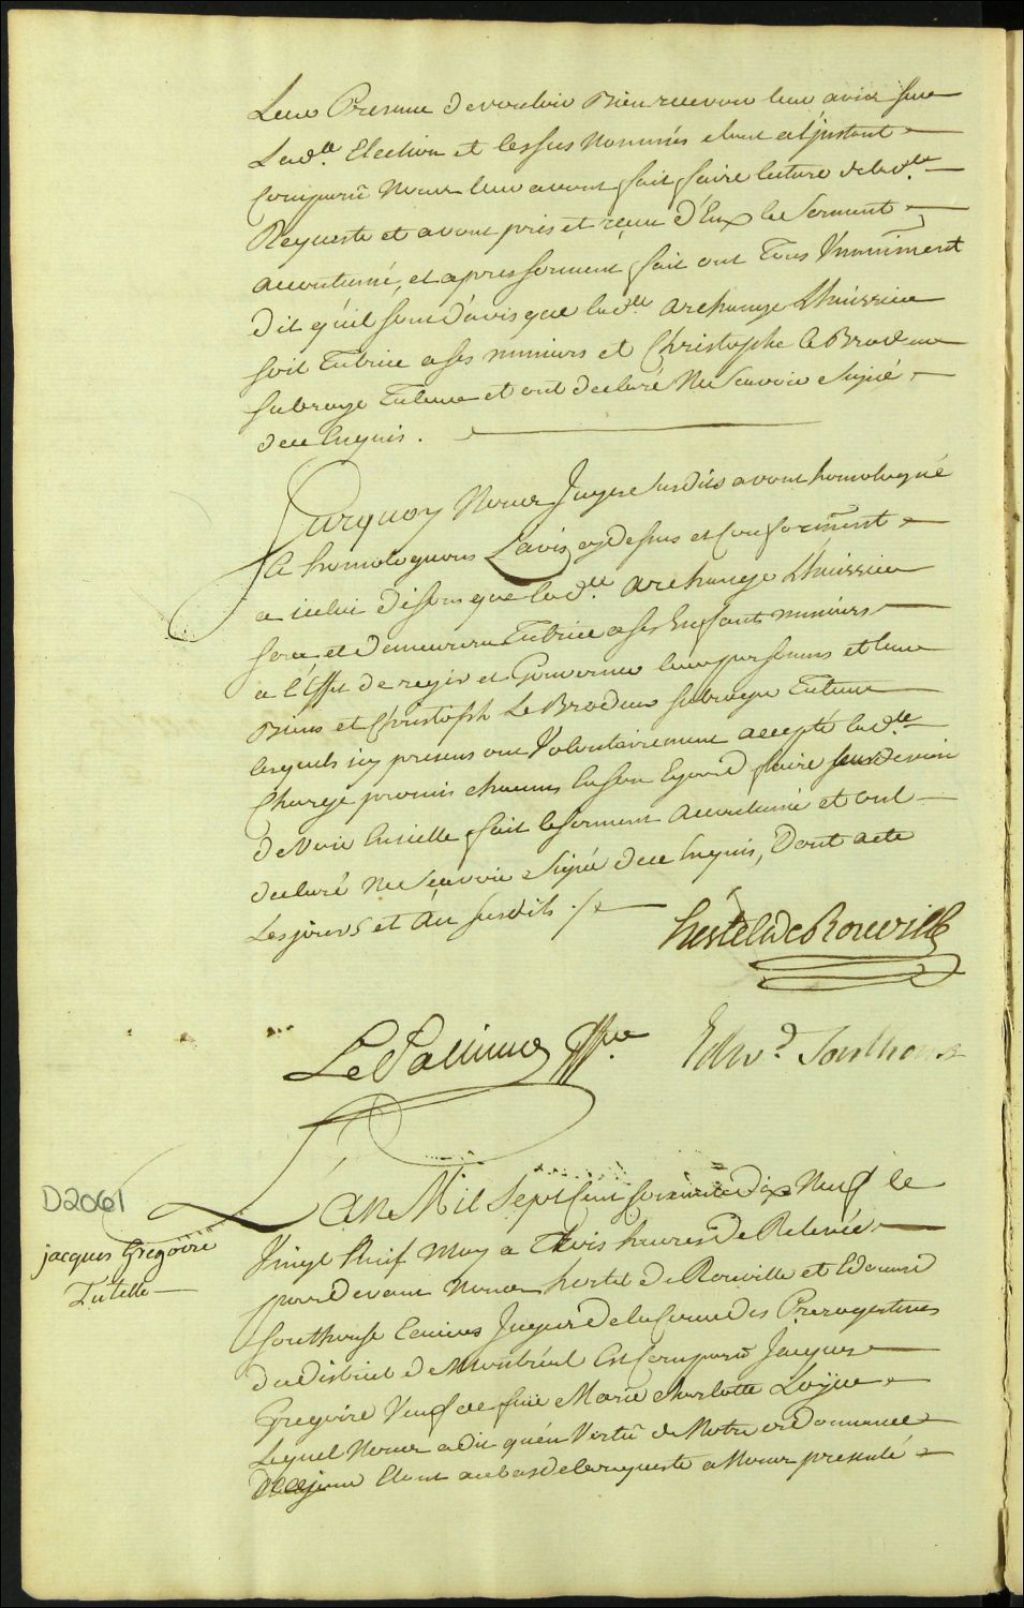 Leur Presence de vouloir Bien recevoir leur avis sur
Lad.lle Election et les sus Nommés étant à l'jnstant
Comparû Nous leur avons fait faire lecture de lad.te
Requeste et avons pris et reçue d'Eux le Serment
accoutumé, et apres serment fait ont Tous Vnanimemt
dit qu'il sont d'avis que lad.te archange Lhuissier
soit Tutrice a ses mineurs et Christophe Le Brodeur
subroge Tuteur et ont declaré Ne Scavoir Signé
de ce Enquis.
Surquoy Nous Juges susdits avons homologué
& homologuons L'avis cy dessus et Conformemt
a icelui disons que lad.te archange Lhuissier
sera et demeurera Tutrice a ses Enfants mineurs
a l'Effet de regir et Gouverner leurs personnes et leur
Biens et Christoph Le Brodeur subroge Tuteur
lesquels icy presens ont Volontairement accepté lad.te
Charge promis chacuns En son Egard faire leur devoir
de Voir Enicelle fait le serment Accoutumé et ont
declaré Ne Sçavoir Signée de ce Enquis, Dont acte
Les jours et An susdits ./.
hertel de Rouville
Le Pallieur Gffier
Edwd. Southouse
D2061
jacques Gregoire
Tutelle
L'An Mil Sept Cent soixante Dix Neuf le
Vingt Huit May a Trois heures De Relevée
pardevant Nous hertel De Rouville et Edouard
Southouse Ecuiers Juges De la Cour des Prerogatives
du District De Montréal Est Comparû Jacques
Gregoire Veuf de feüe Marie Charlotte
Lequel Nous a dit qu'en Vertû de Notre ordonnance
De ce jour Etant au bas de la requeste a Nous presenté